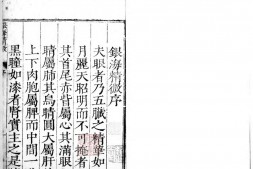 銀海精微序
夫眼者乃五臟之精華如
月麗天昭明而不可掩者
其首尾赤眥屬心其滿眼
睛屬肺其烏睛圓大屬肝
上下肉胞屬脾而中間一
黑瞳如漆者腎實主之是